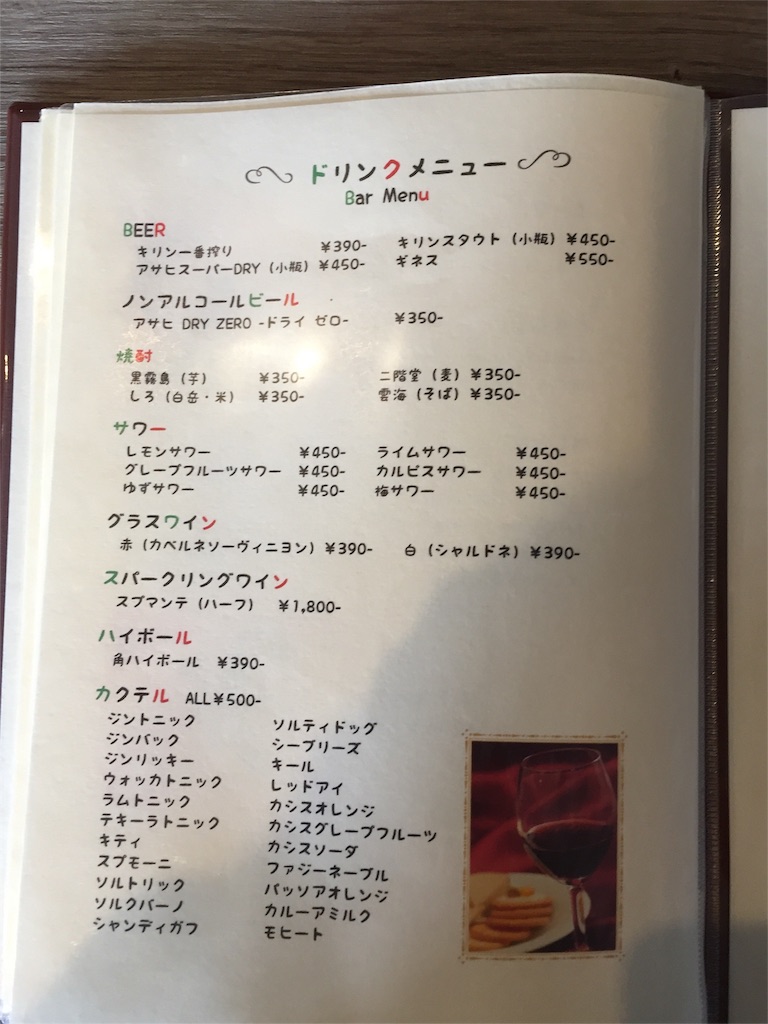 ドリンクメニュー
Bar Menu
BEER
キリン一番搾り ¥390- キリンスタウト（小瓶）¥450-
アサヒスーパーDRY（小瓶）¥450- ギネス ¥550-
ノンアルコールビール
アサヒ DRY ZERO -ドライ ゼロ- ¥350-
焼酎
黒霧島（芋） ¥350- 二階堂（麦）¥350-
しろ（白岳・米） ¥350- 雲海（そば）¥350-
サワー
レモンサワー ¥450- ライムサワー ¥450-
グレープフルーツサワー ¥450- カルピスサワー ¥450-
ゆずサワー ¥450- 梅サワー ¥450-
グラスワイン
赤（カベルネソーヴィニヨン）¥390- 白（シャルドネ）¥390-
スパークリングワイン
スプマンテ（ハーフ） ¥1,800-
ハイボール
角ハイボール ¥390-
カクテル ALL¥500-
ジントニック
ジンバック
ジンリッキー
ウォッカトニック
ラムトニック
テキーラトニック
キティ
スプモーニ
ソルトリック
ソルクバーノ
シャンディガフ
ソルティドッグ
シーブリーズ
キール
レッドアイ
カシスオレンジ
カシスグレープフルーツ
カシスソーダ
ファジーネーブル
パッソアオレンジ
カルーアミルク
モヒート